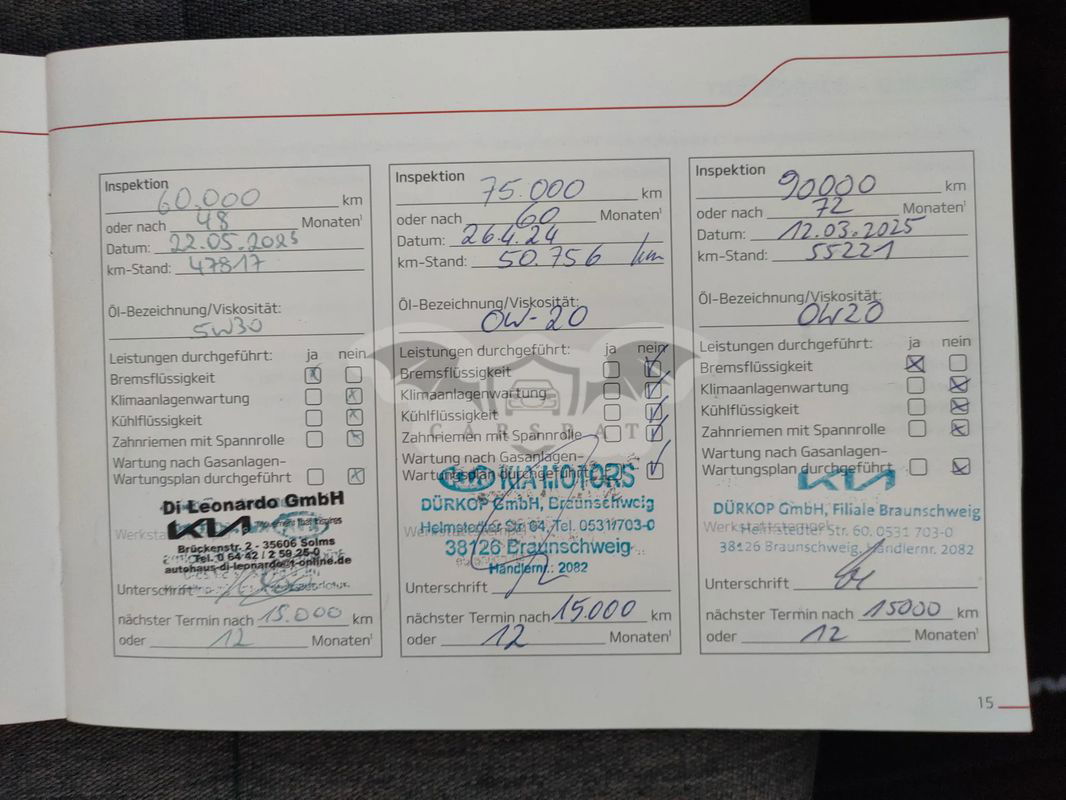 Inspektion
60.000 km
oder nach 48 Monaten¹
Datum: 22.05.2023
km-Stand: 47817
Öl-Bezeichnung/Viskosität:
5W30
Leistungen durchgeführt: ja nein
Bremsflüssigkeit
Klimaanlagenwartung
Kühlflüssigkeit
Zahnriemen mit Spannrolle
Wartung nach Gasanlagen-
Wartungsplan durchgeführt
Di Leonardo GmbH
KIA
Brückenstr. 2 - 35606 Solms
Tel. 0 64 42 / 2 59 25-0
autohaus-di-leonardo@t-online.de
Unterschrift
nächster Termin nach 15.000 km
oder 12 Monaten¹
Inspektion
75.000 km
oder nach 60 Monaten¹
Datum: 26.4.24
km-Stand: 50.756 km
Öl-Bezeichnung/Viskosität:
0W-20
Leistungen durchgeführt: ja nein
Bremsflüssigkeit
Klimaanlagenwartung
Kühlflüssigkeit
CARSPAT
Zahnriemen mit Spannrolle
Wartung nach Gasanlagen-
Wartungsplan durchgeführt
KIA MOTORS
DÜRKOP GmbH, Braunschweig
Helmstedter Str. 64, Tel. 0531/703-0
38126 Braunschweig
Händlernr.: 2082
Unterschrift
nächster Termin nach 15.000 km
oder 12 Monaten¹
Inspektion
90000 km
oder nach 72 Monaten¹
Datum: 12.03.2025
km-Stand: 55221
Öl-Bezeichnung/Viskosität:
0W20
Leistungen durchgeführt: ja nein
Bremsflüssigkeit
Klimaanlagenwartung
Kühlflüssigkeit
Zahnriemen mit Spannrolle
Wartung nach Gasanlagen-
Wartungsplan durchgeführt
KIA
DÜRKOP GmbH, Filiale Braunschweig
Werkstattstempel
Helmstedter Str. 60, 0531 703-0
38126 Braunschweig, Händlernr. 2082
Unterschrift
nächster Termin nach 15000 km
oder 12 Monaten¹
15